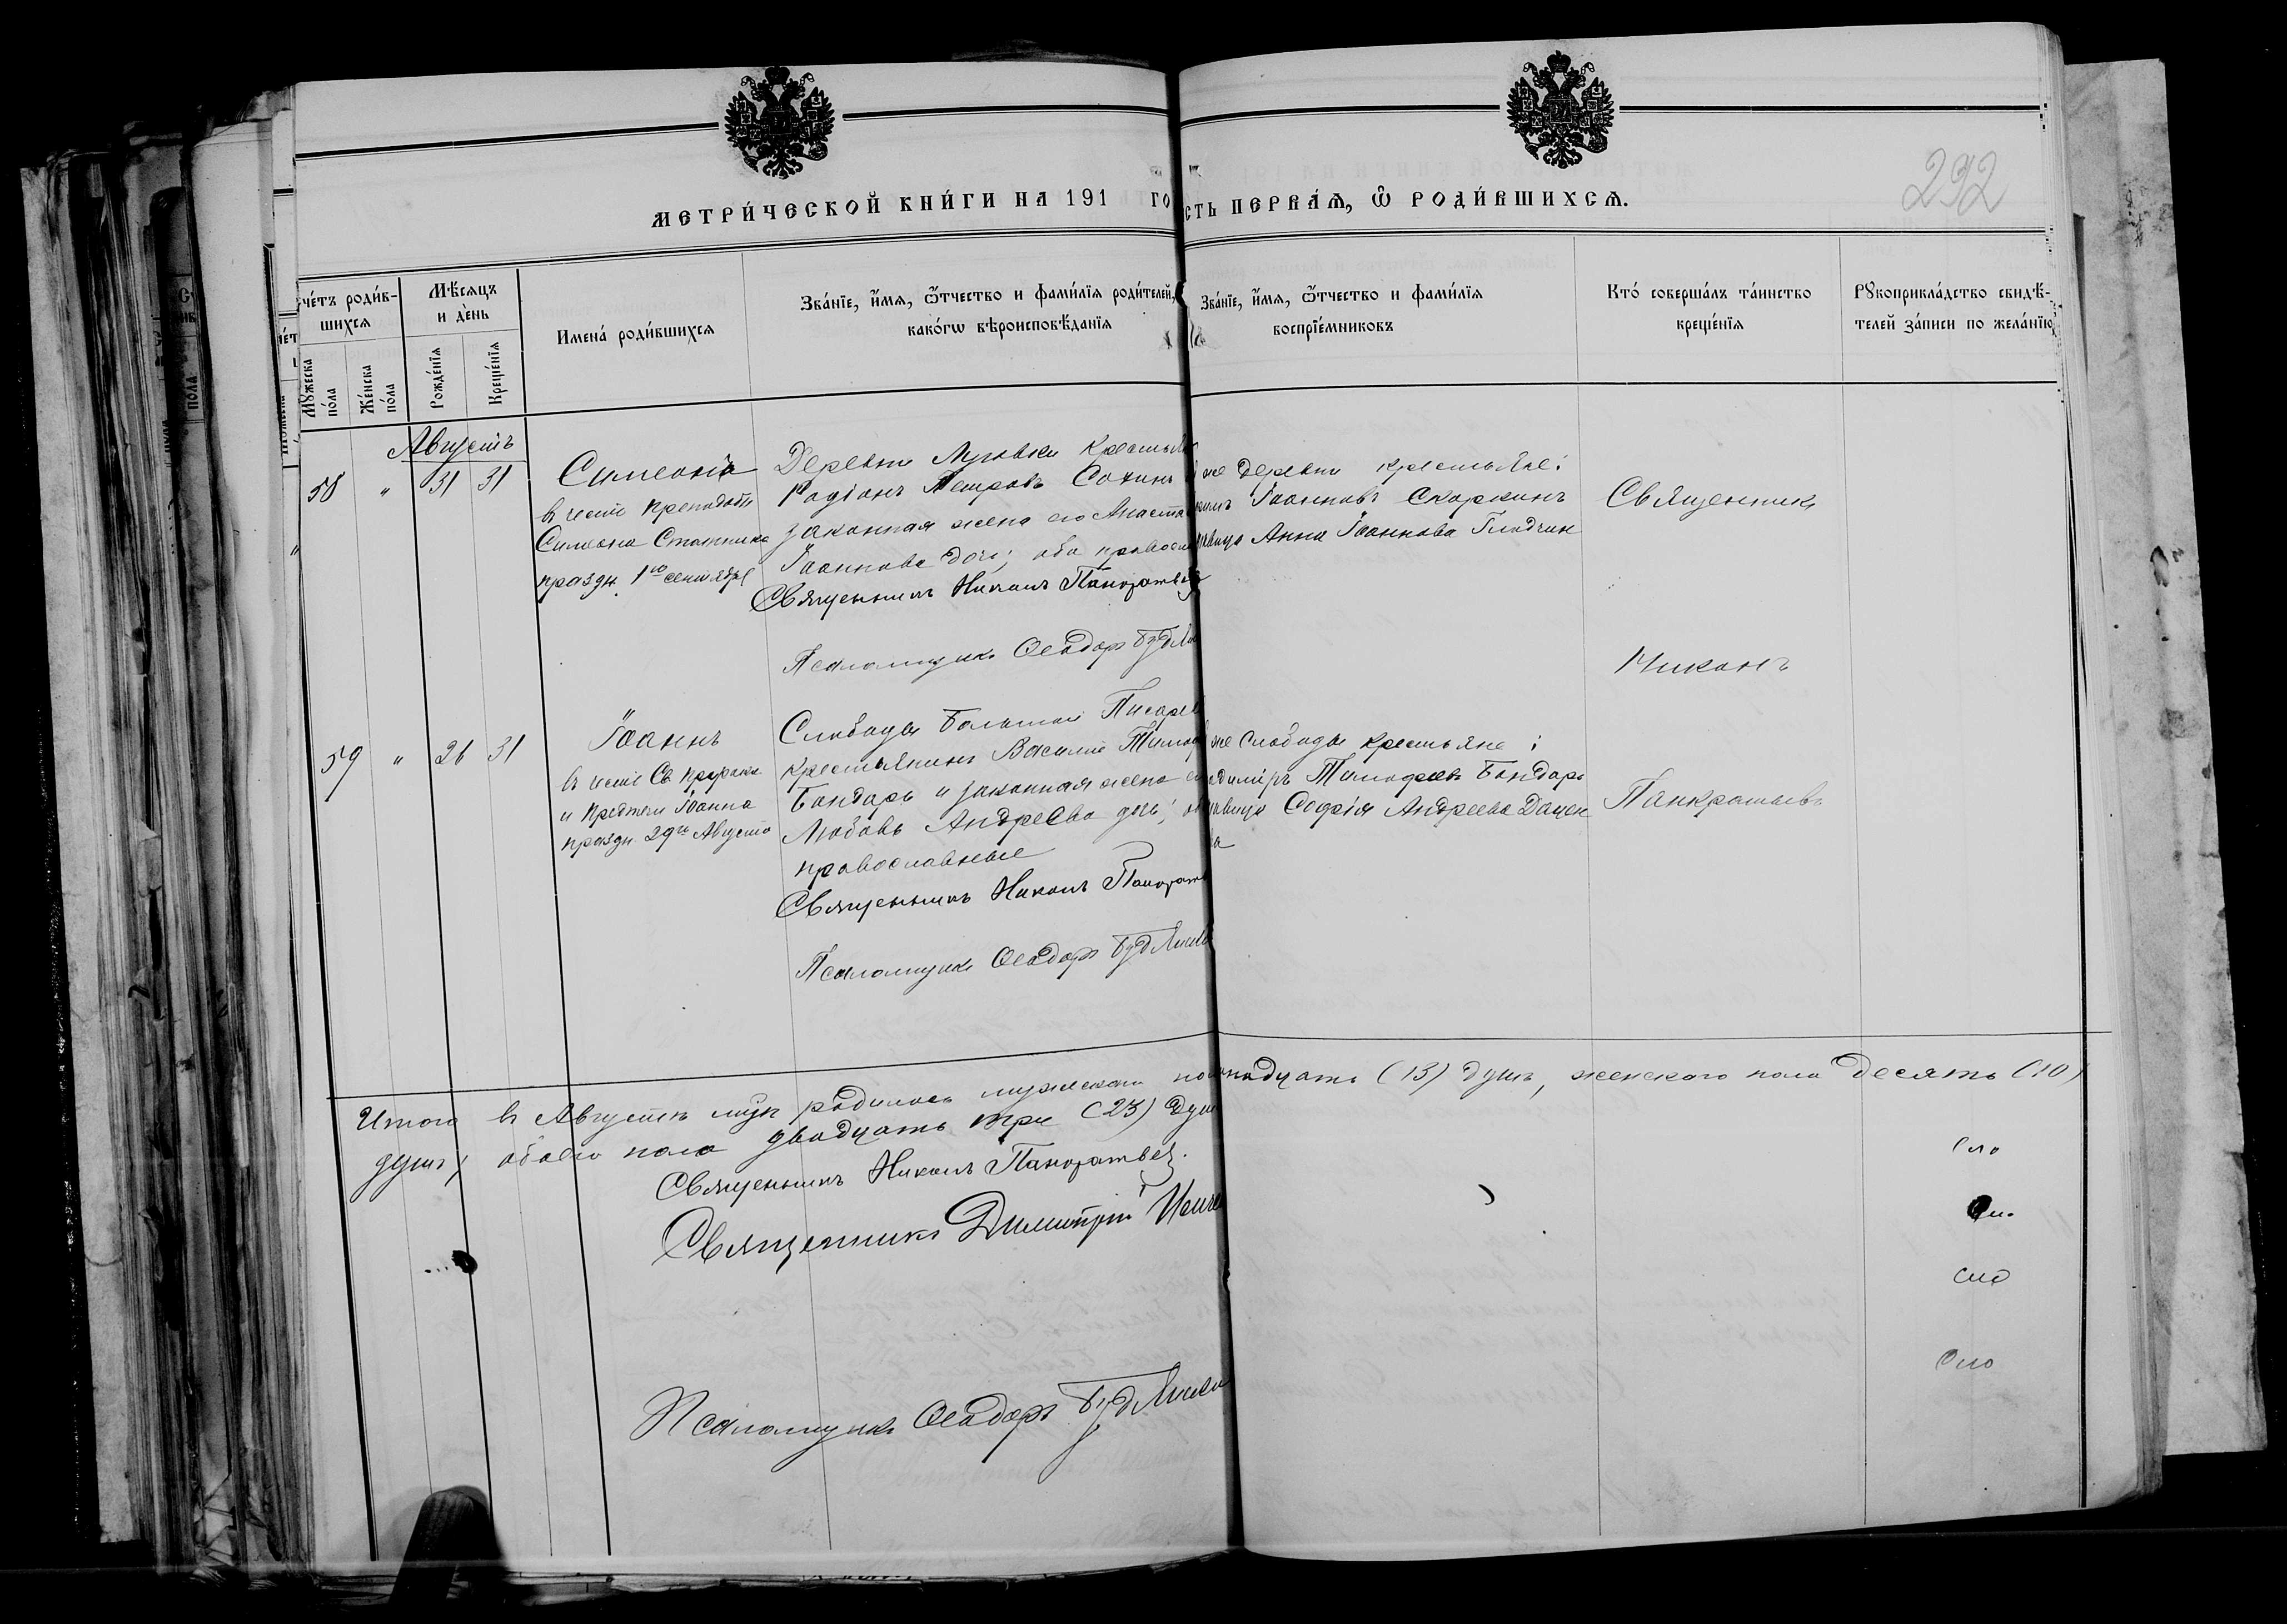 292
МЕТРИ́ЧЕСКОЙ КНИ́ГИ НА 191 ГО
СТЬ ПЕРВАѦ, Ѿ РОДИ́ВШИХСѦ.
че́тъ роди́в-
шихсѧ
Мꙋ́жеска по́ла
Же́нска по́ла
Мѣ́сѧцъ
и де́нь
Рожде́нїѧ
Креще́нїѧ
Имена́ роди́вшихсѧ
Зва́нїе, и́мѧ, ѻ҆́тчество и фами́лїѧ роди́телей,
како́гѡ вѣроисповѣ́данїѧ
Зва́нїе, и́мѧ, ѻ҆́тчество и фами́лїѧ
воспрїе́мниковъ
Кто́ соверша́лъ та́инство
креще́нїѧ
Рꙋкоприкла́дство свидѣ́-
телей за́писи по жела́нїю
Августъ
58 " 31 31
Симеонъ
въ честь преподобн
Симеона Столпника
празд. 1го сентября
Деревни крестьян
Родіонъ Петровъ Сохинъ
законная жена его Анаста
Іоаннова дочь; оба правосл
Священникъ Никонъ Панкратьев
Псаломщикъ Ѳеодоръ
же деревни крестьяне:
Іоанновъ Скоркинъ
Анна Іоаннова Гладчин
Священникъ
Никонъ
Панкратьевъ
59 " 26 31
Іоаннъ
въ честь Св пророка
и Предтечи Іоанна
празд. 29го Августа
Слободы Большой Писарев
крестьянинъ Василій Тимоф
Бондарь и законная жена е
Любовь Андреева дочь; о
православные
Священникъ Никонъ Панкрат
Псаломщикъ Ѳеодоръ
же слободы крестьяне:
димиръ Тимофеевъ Бондарь
вица Софія Андреева Дацен
ва
Итого въ Августѣ мцѣ родилось мужескаго по надцать (13) душъ, женскаго пола десять (10)
душъ, обоего пола двадцать три (23) душ
Священникъ Никонъ Панкратьев.
Священникъ Димитрій
Псаломщикъ Ѳеодоръ